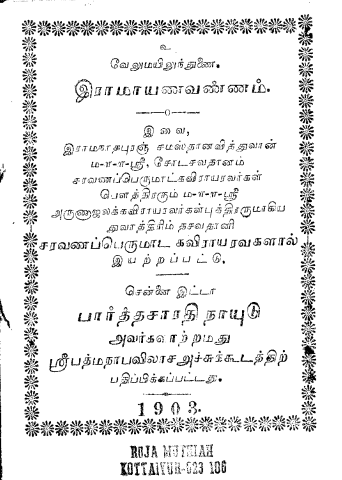 உ
வேலுமயிலுந்துணை.
இராமாயணவண்ணம்.
இவை,
இராமநாதபுரஞ் சமஸ்தானவித்துவான்
ம-ள-ள-ஸ்ரீ, சோடசவதானம்
சரவணப்பெருமாட்கவிராயரவர்கள்
பௌத்திரரும் ம-ள-ள-ஸ்ரீ
அருணாஜலக்கவிராயரவர்கள்புத்திரருமாகிய
துவாத்திரிம் தசவதானி
சரவணப்பெருமாட கவிராயரவர்களால்
இயற்றப்பட்டு.
சென்னை இட்டா
பார்த்தசாரதி நாயுடு
அவர்களாற்றமது
ஸ்ரீபத்மநாபவிலாசஅச்சுக்கூடத்திற்
பதிப்பிக்கப்பட்டது.
1903.
ROJA MUTHIAH
KOTTAIYUR-623 106